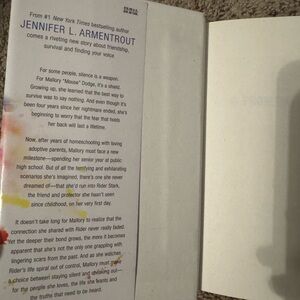 From #1 New York Times bestselling author
JENNIFER L. ARMENTROUT
comes a riveting new story about friendship,
survival and finding your voice
For some people, silence is a weapon.
For Mallory "Mouse" Dodge, it's a shield.
Growing up, she learned that the best way to
survive was to say nothing. And even though it's
been four years since her nightmare ended, she's
beginning to worry that the fear that holds
her back will last a lifetime.
Now, after years of homeschooling with loving
adoptive parents, Mallory must face a new
milestone—spending her senior year at public
high school. But of all the terrifying and exhilarating
scenarios she's imagined, there's one she never
dreamed of—that she'd run into Rider Stark,
the friend and protector she hasn't seen
since childhood, on her very first day.
It doesn't take long for Mallory to realize that the
connection she shared with Rider never really faded.
Yet the deeper their bond grows, the more it becomes
apparent that she's not the only one grappling with
lingering scars from the past. And as she watches
Rider's life spiral out of control, Mallory must make
a choice between staying silent and speaking out—
for the people she loves, the life she wants and
the truths that need to be heard.